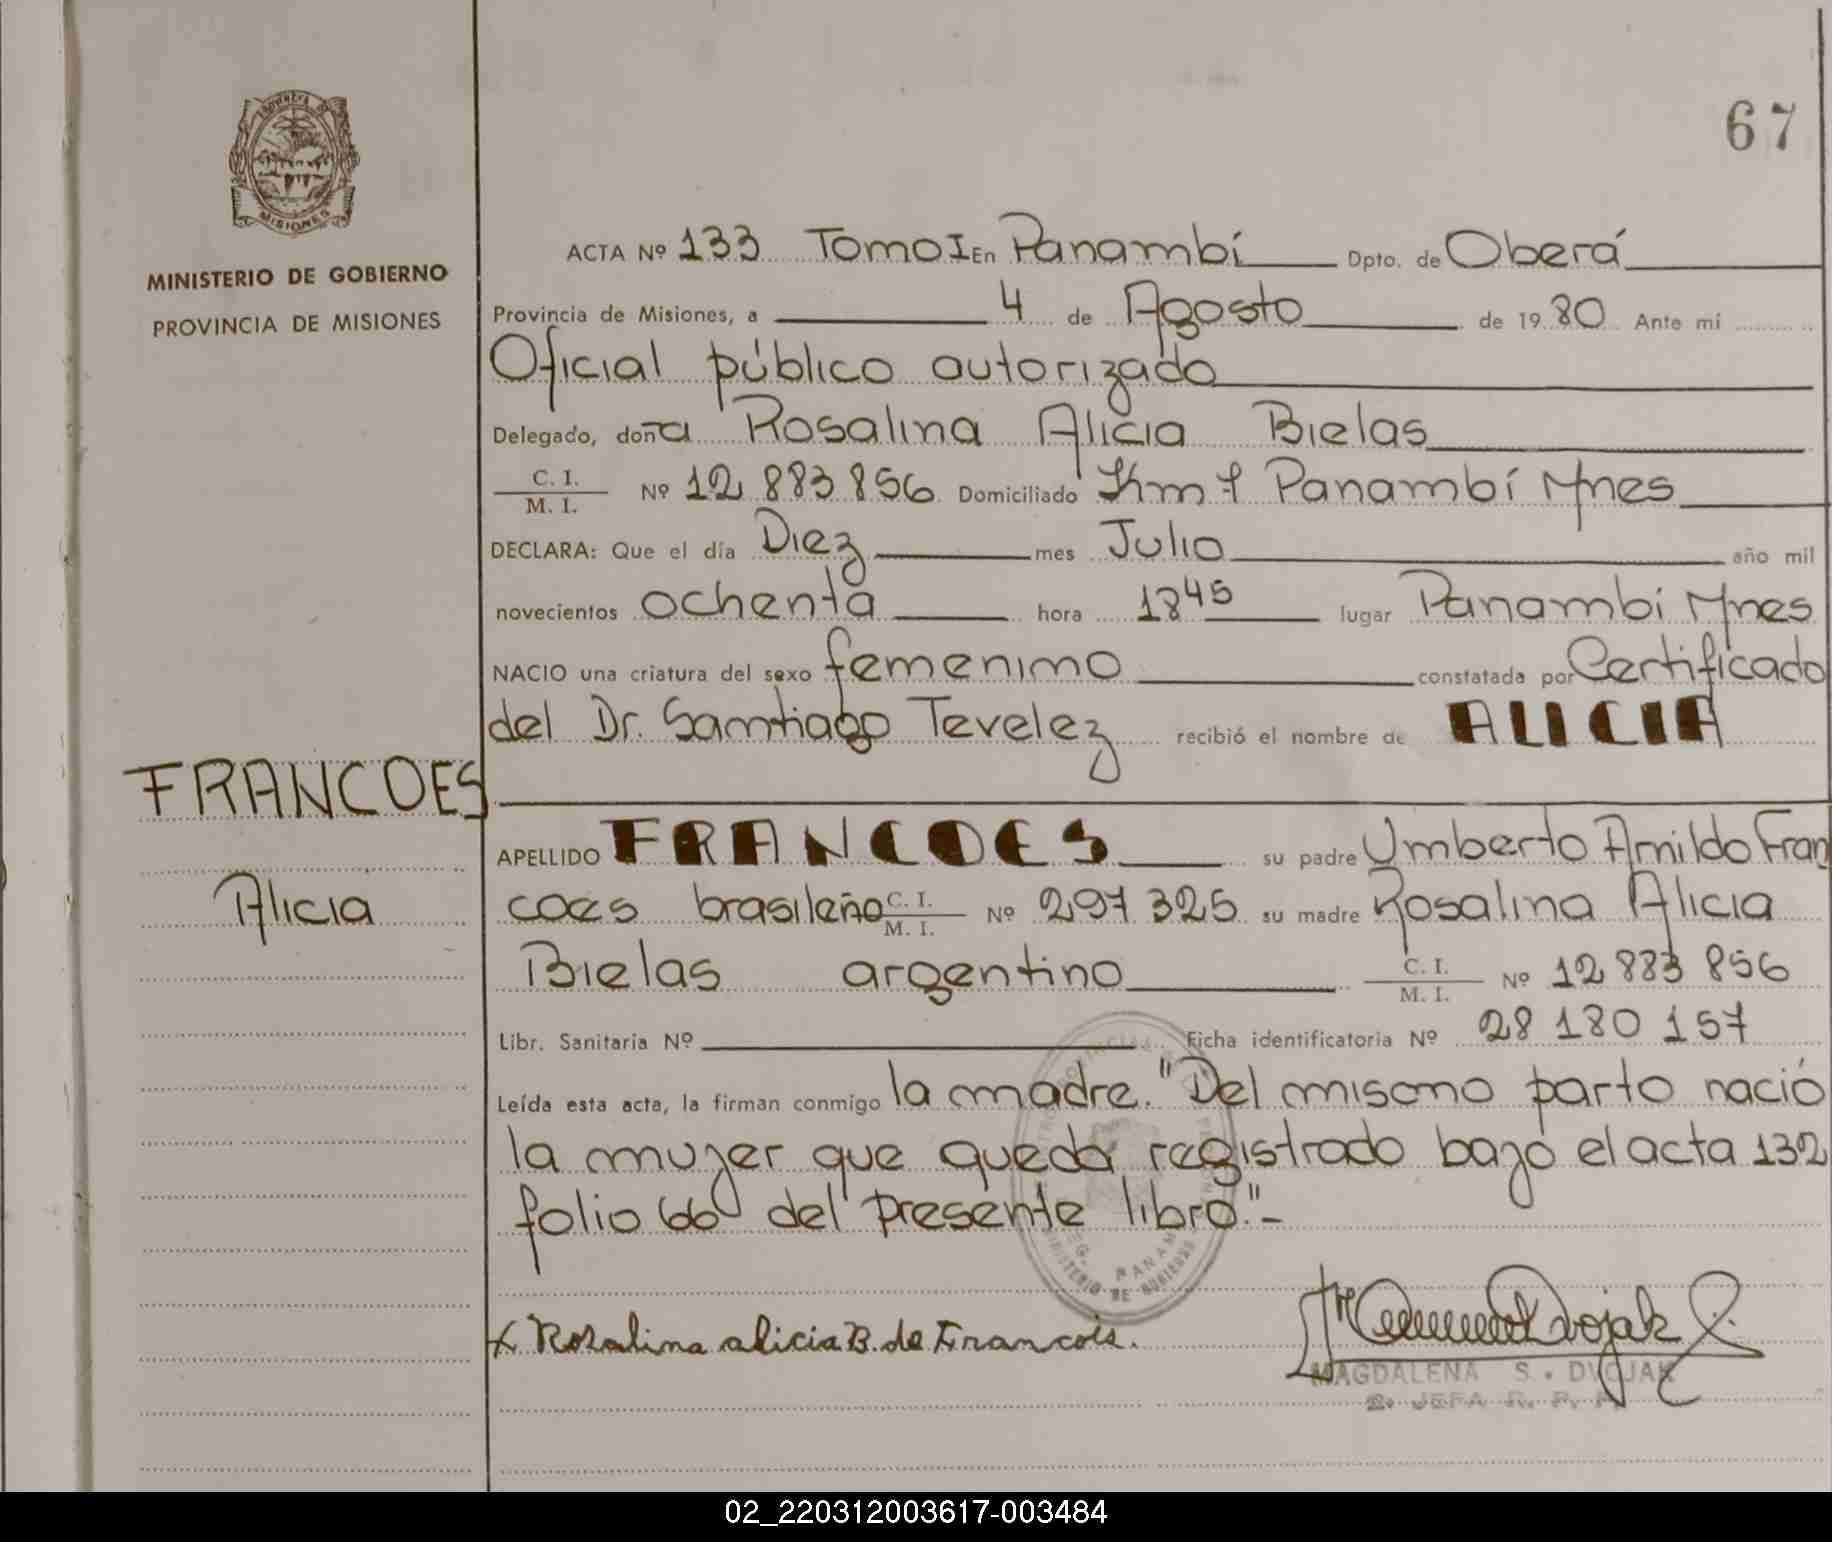 67
MISIONES
MINISTERIO DE GOBIERNO
PROVINCIA DE MISIONES
FRANCOES
Alicia
ACTA Nº 133 Tomo I En Panambí Dpto. de Oberá
Provincia de Misiones, a 4 de Agosto de 1980 Ante mi
Oficial público autorizado
Delegado, doña Rosalina Alicia Bielas
C. I.
M. I. Nº 12 883 856 Domiciliado Km 7 Panambí Mnes
DECLARA: Que el día Diez mes Julio año mil
novecientos ochenta hora 18 45 lugar Panambí Mnes
NACIO una criatura del sexo femenino constatada por Certificado
del Dr. Santiago Tevelez recibió el nombre de ALICIA
APELLIDO FRANCOES su padre Umberto Arnildo Fran
coes brasileño C. I. M. I. Nº 297 325 su madre Rosalina Alicia
Bielas argentino C. I. M. I. Nº 12 883 856
Libr. Sanitaria Nº Ficha identificatoria Nº 28 180 157
Leída esta acta, la firman conmigo la madre. "Del mismo parto nació
la mujer que queda registrado bajo el acta 132
folio 66 del presente libro."-
x Rosalina alicia B. de Francois.
MAGDALENA S. DVOJAK
JEFA R. P.
02_220312003617-003484